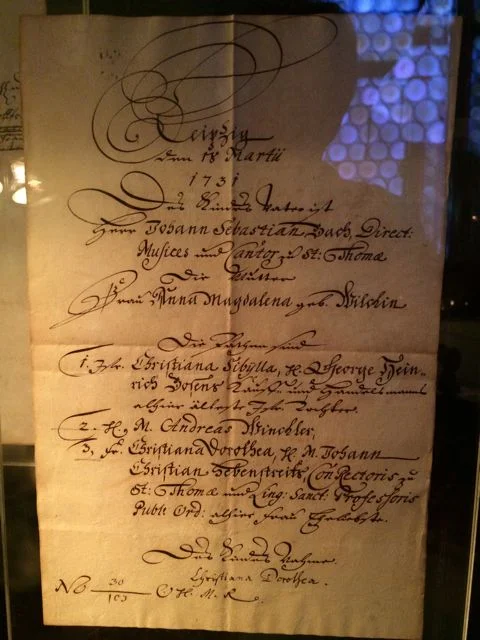 Leipzig
den 18 Martii
1731
Des Kindes Vater ist
Herr Johann Sebastian Bach, Direct:
Musices und Cantor zu St: Thomæ
Die Mutter
Frau Anna Magdalena geb. Wilckin
Die Pathen sind
1. Jfr. Christiana Sibylla, H. George Hein-
rich Bosens Kauff- und Handelsmanns
alhier älteste Jfr. Tochter.
2. H. M. Andreas Winckler,
3. Fr. Christiana Dorothea, H. M. Johann
Christian Hebenstreits, ConRectoris zu
St: Thomæ und Ling: Sanct: Professoris
Publ: Ord: alhier Frau Eheliebste.
Des Kindes Nahme.
Christiana Dorothea.
No 30
103 H. M. R.